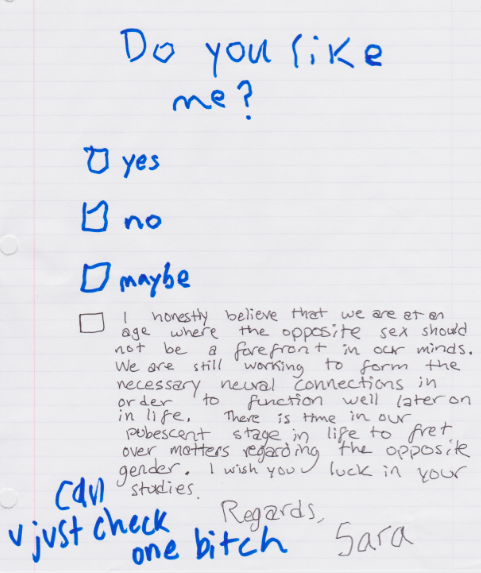 Do you like
me?
yes
no
maybe
I honestly believe that we are at an
age where the opposite sex should
not be a forefront in our minds.
We are still working to form the
necessary neural connections in
order to function well later on
in life. There is time in our
pubescent stage in life to fret
over matters regarding the opposite
gender. I wish you luck in your
studies.
Regards,
Sara
can
u just check
one bitch